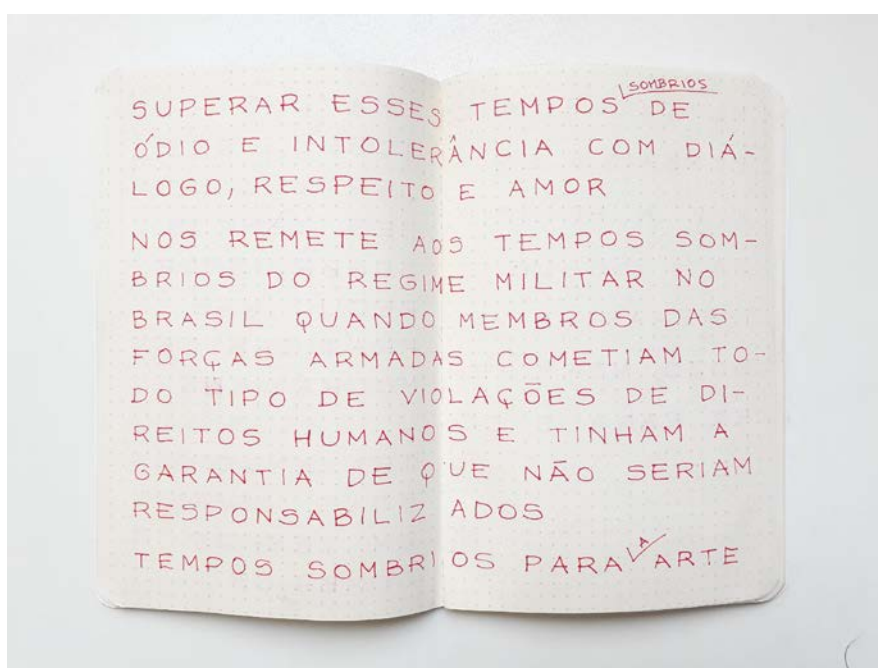 SUPERAR ESSES TEMPOS SOMBRIOS DE
ÓDIO E INTOLERÂNCIA COM DIÁ-
LOGO, RESPEITO E AMOR
NOS REMETE AOS TEMPOS SOM-
BRIOS DO REGIME MILITAR NO
BRASIL QUANDO MEMBROS DAS
FORÇAS ARMADAS COMETIAM TO-
DO TIPO DE VIOLAÇÕES DE DI-
REITOS HUMANOS E TINHAM A
GARANTIA DE QUE NÃO SERIAM
RESPONSABILIZADOS
TEMPOS SOMBRIOS PARA A ARTE